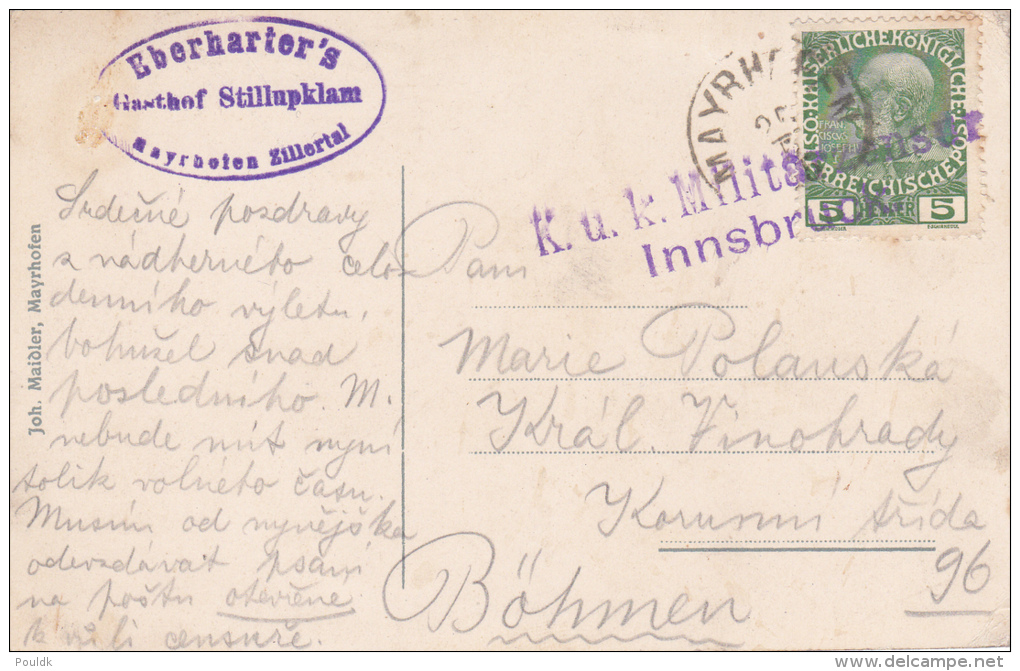 Eberharter's
Gasthof Stillupklam
Mayrhofen Zillertal
MAYRHOFEN
25
K. u. k. Militärzensur
Innsbruck
KAISERLICHE KÖNIGLICHE
ÖSTERREICHISCHE POST
5 5
Joh. Maidler, Mayrhofen
Srdečné pozdravy
z nádherného celo-
denního výletu,
bohužel snad
posledního. M.
nebude mít nyní
tolik volného času.
Musím od nynějška
odevzdávat psaní
na poštu otevřené
k vůli censuře.
Paní
Marie Polanská
Král. Vinohrady
Korunní třída
96
Böhmen
Pouldk
www.delcampe.net